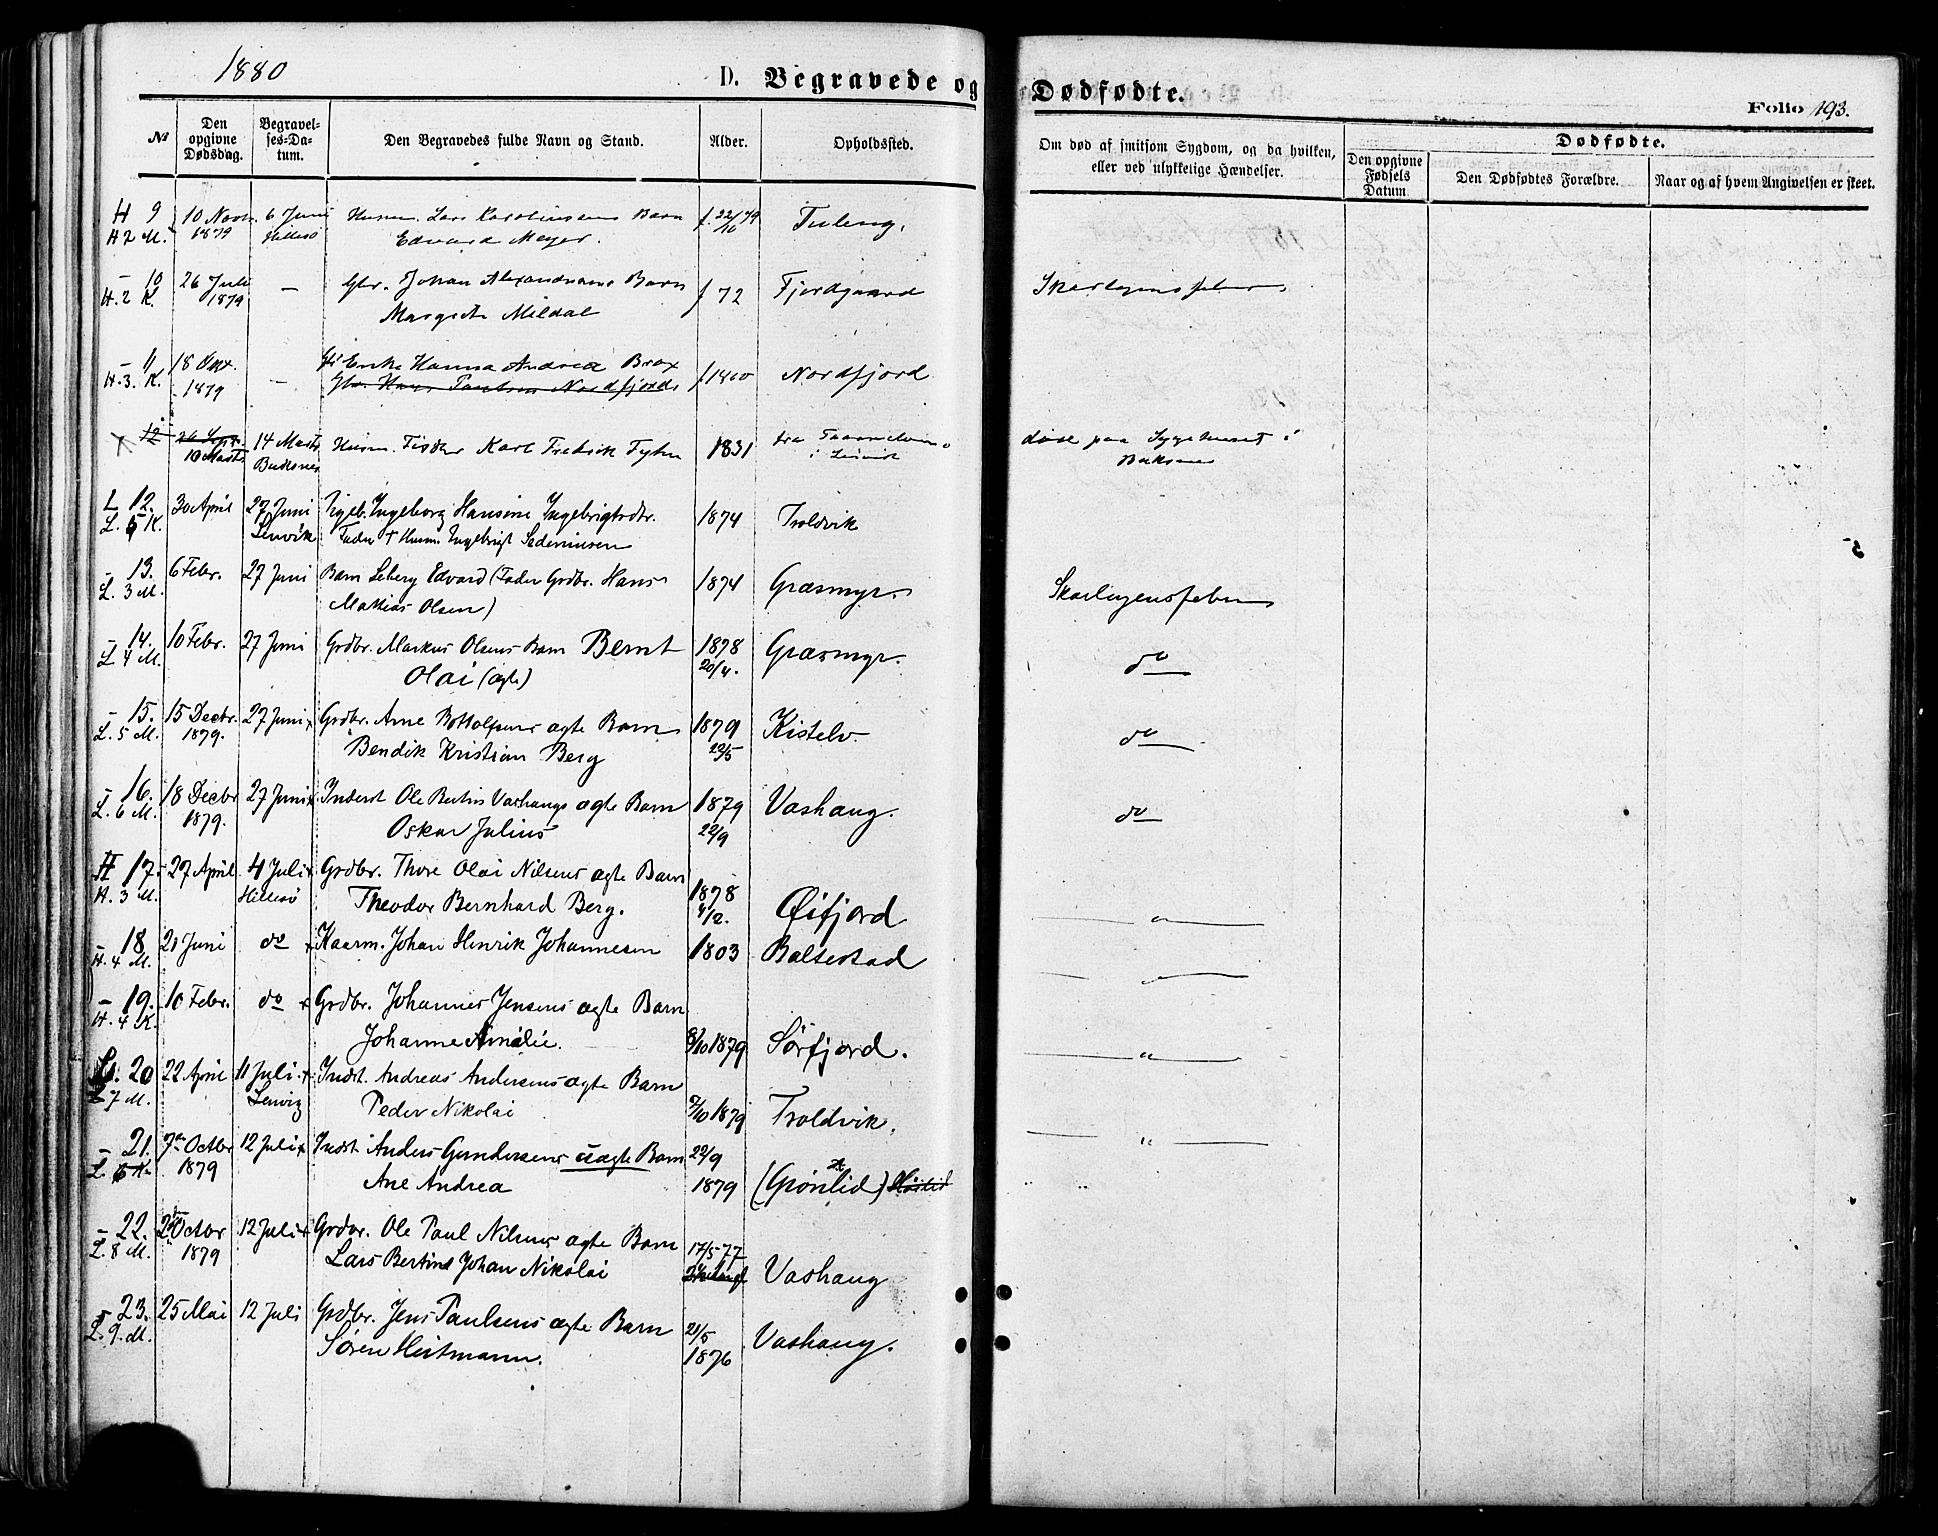 1880
D. Begravede og Dødfødte.
Folio 193.
№
Den opgivne Dødsdag.
Begravel-ses-Da-tum.
Den Begravedes fulde Navn og Stand.
Alder.
Opholdssted.
Om død af smitsom Sygdom, og da hvilken, eller ved ulykkelige Hændelser.
Dødfødte.
Den opgivne Fødsels Datum.
Den Dødfødtes Forældre.
Naar og af hvem Angivelsen er skeet.
H 9 10 Novb. 6 Juni Husm. Lars Karolinsens Barn f. 22/10 79 Tuleng.
H 2 M. 1879 Hillesø Edvard Meyer.
- 10 26 Juli - Gbr. Johan Alexandersens Barn f 72 Fjordgaard Skarlagensfeber
H. 2 K. 1879 Margrete Mildal
- 11 18 - Enke Hanna Andrea Brox f 1800 Nordfjord
H. 3. K. 1879 Gbr. Hans Paulsen Nordfjords
12 14 Marts Husm. Fisker Karl Fredrik 1831 fra døde paa Sygehuset i
10 Marts Balsnes i Lenvik Balsnes
L 12. 30 April 27 Juni Pigeb. Ingeborg Hansine Ingebrigtsdtr. 1874 Troldvik
L. 5 K. Lenvik Fader † Husm. Ingebrigt
- 13. 6 Febr. 27 Juni Barn Leberg Edvard (Fader Grdbr. Hans 1874 Græsmyr. Skarlagensfeber
L. 3 M. Mathias Olsen)
- 14. 10 Febr. 27 Juni Grdbr. Markus Olsens Barn Bernt 1878 Græsmyr. do
L 4 M. Olai (ægte) 20/4.
- 15. 15 Decbr. 27 Juni Grdbr. Arne Bottolfsens ægte Barn 1879 Kistelv. do
L. 5 M. 1879. Bendik Kristian Berg 22/5
- 16. 18 Decbr 27 Juni Inderst Ole Bertin Vashaugs ægte Barn 1879 Vashaug. do
L. 6 M. 1879. Oskar Julius 22/9
H 17. 27 April 4 Juli Grdbr. Thore Olai Nilsens ægte Barn 1878 Øifjord "
H. 3 M. Hillesø Theodor Bernhard Berg. 4/12.
- 18 21 Juni do Kaarm. Johan Henrik Johannesen 1803 Baltestad "
H. 4 M.
- 19. 10 Febr. do Grdbr. Johannes Jensens ægte Barn
H. 4 K. Johanne Amalie. 8/10 1879 Sørfjord. "
L. 20 22 April 11 Juli Indst. Andreas Andersens ægte Barn
L 7 M. Lenvig Peder Nikolai 7/10 1879 Troldvik. "
- 21. 7de Octbr 12 Juli Indst. Anders Gundersens uægte Barn 22/9
L. 6 K. 1879 Ane Andrea 1879 (Grønlid) " "
- 22. Octbr 12 Juli Grdbr. Ole Paul Nilsens ægte Barn 17/5 77
L. 8 M. 1879 Lars Bertinus Johan Nikolai Vashaug
- 23. 25 Mai 12 Juli Grdbr. Jens Paulsens ægte Barn 21/5 Vashaug.
L. 9. M. Søren Heitmann. 1876